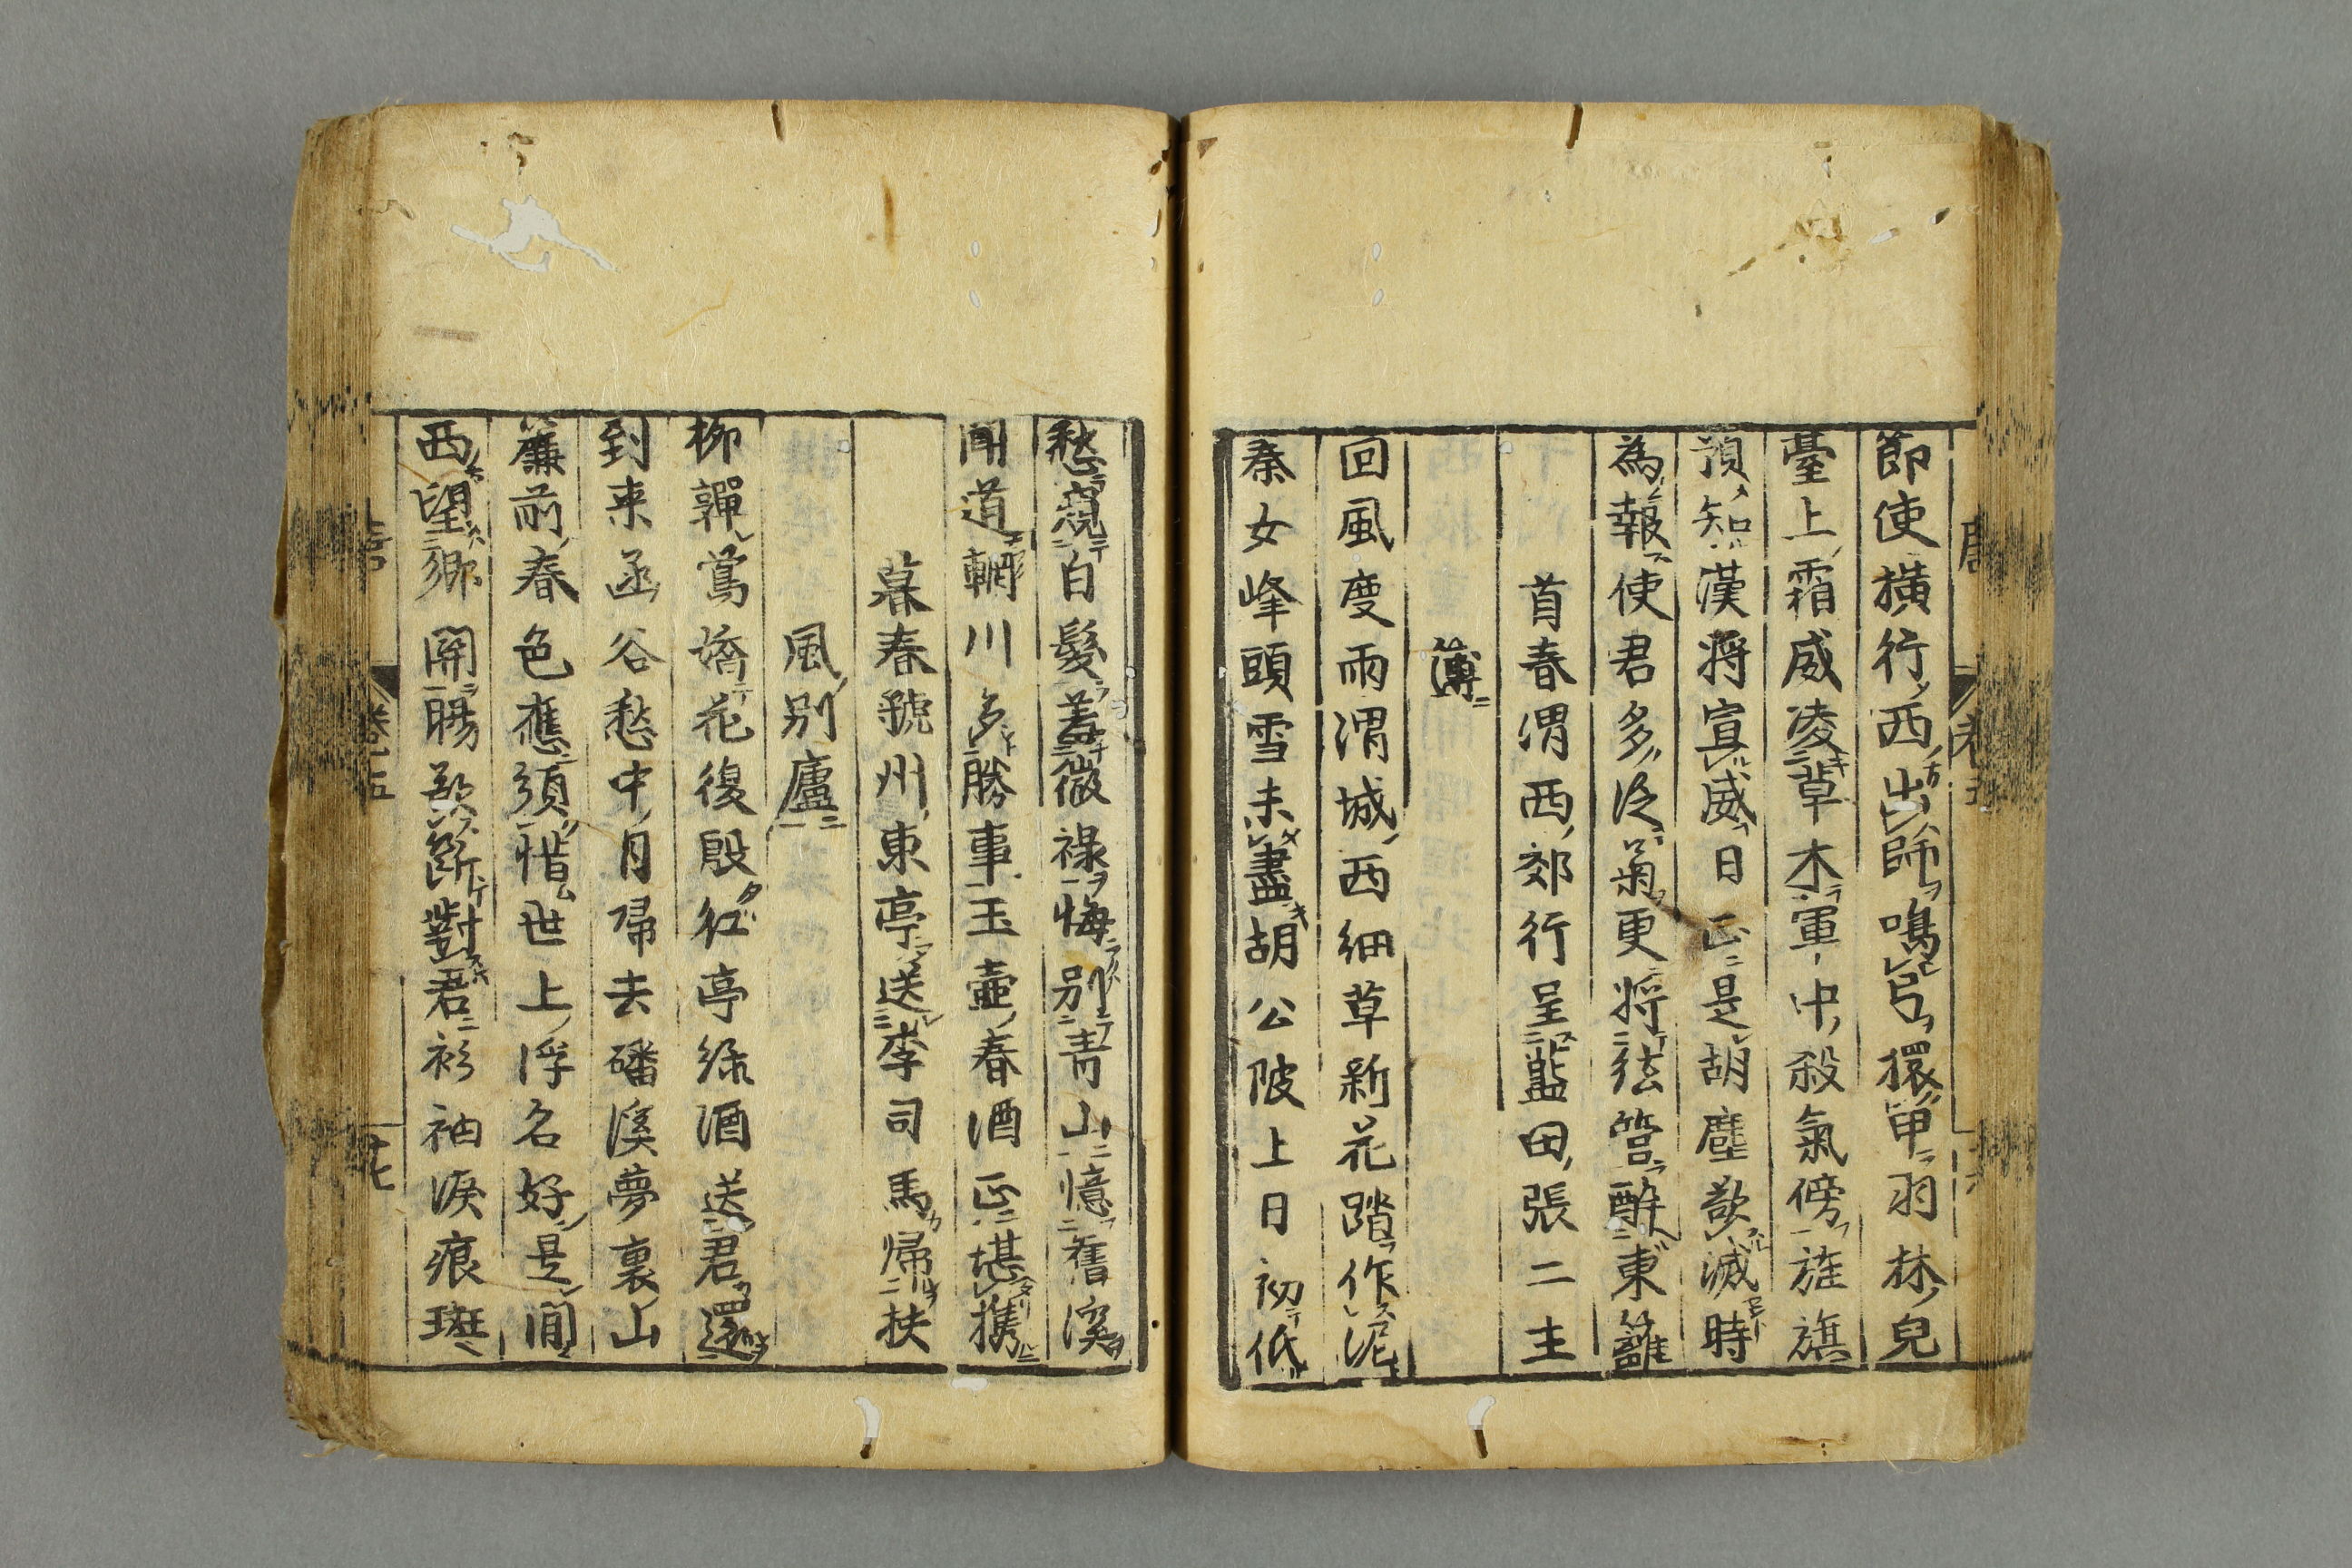 唐 卷五
節使橫行西出師鳴弓擐甲羽林兒
臺上霜威凌草木軍中殺氣傍旌旗
預知漢將宣威日正是胡塵欲滅時
為報使君多泛菊更將弦管醉東籬
首春渭西郊行呈藍田張二主
簿
回風度雨渭城西細草新花踏作泥
秦女峰頭雪未盡胡公陂上日初低
愁窺白髮羞微祿悔別青山憶舊溪
聞道輞川多勝事玉壺春酒正堪携
暮春虢州東亭送李司馬帰扶
風別廬
柳嚲鶯嬌花復殷紅亭綠酒送君還
到来函谷愁中月帰去磻溪夢裏山
簾前春色應須惜世上浮名好是間
西望鄉關腸欲斷對君衫袖淚痕斑
卷五 十七